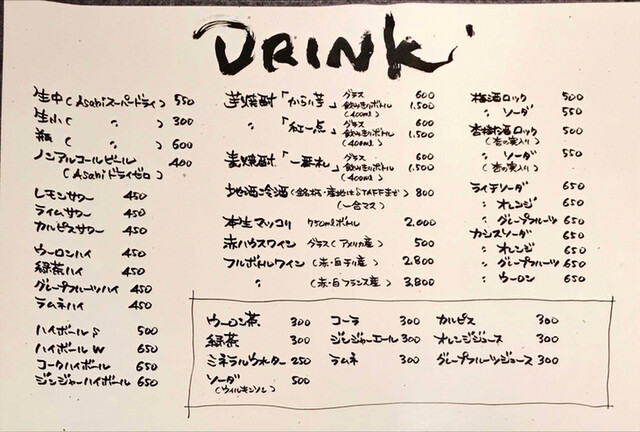 DRINK
生中(Asahiスーパードライ) 550
生小( 〃 ) 300
瓶( 〃 ) 600
ノンアルコールビール 400
(Asahiドライゼロ)
レモンサワー 450
ライムサワー 450
カルピスサワー 450
ウーロンハイ 450
緑茶ハイ 450
グレープフルーツハイ 450
ラムネハイ 450
ハイボール S 500
ハイボール W 650
コークハイボール 650
ジンジャーハイボール 650
芋焼酎「からり芋」グラス 600
飲みきりボトル 1,500
(400ml)
〃 「紅一点」グラス 600
飲みきりボトル 1,500
(400ml)
麦焼酎「一番札」グラス 600
飲みきりボトル 1,500
(400ml)
地酒冷酒(銘柄・産地はSTAFFまで) 800
(一合マス)
本生マッコリ 750mlボトル 2,000
赤ハウスワイン グラス(アメリカ産) 500
フルボトルワイン(赤・白チリ産) 2,800
〃 (赤・白フランス産) 3,800
梅酒ロック 500
〃 ソーダ 550
杏梅酒ロック 500
(杏の実入り)
〃 ソーダ 550
(杏の実入り)
ライチソーダ 650
〃 オレンジ 650
〃 グレープフルーツ 650
カシスソーダ 650
〃 オレンジ 650
〃 グレープフルーツ 650
〃 ウーロン 650
ウーロン茶 300
緑茶 300
ミネラルウォーター 250
ソーダ 500
(ウィルキンソン)
コーラ 300
ジンジャーエール 300
ラムネ 300
カルピス 300
オレンジジュース 300
グレープフルーツジュース 300